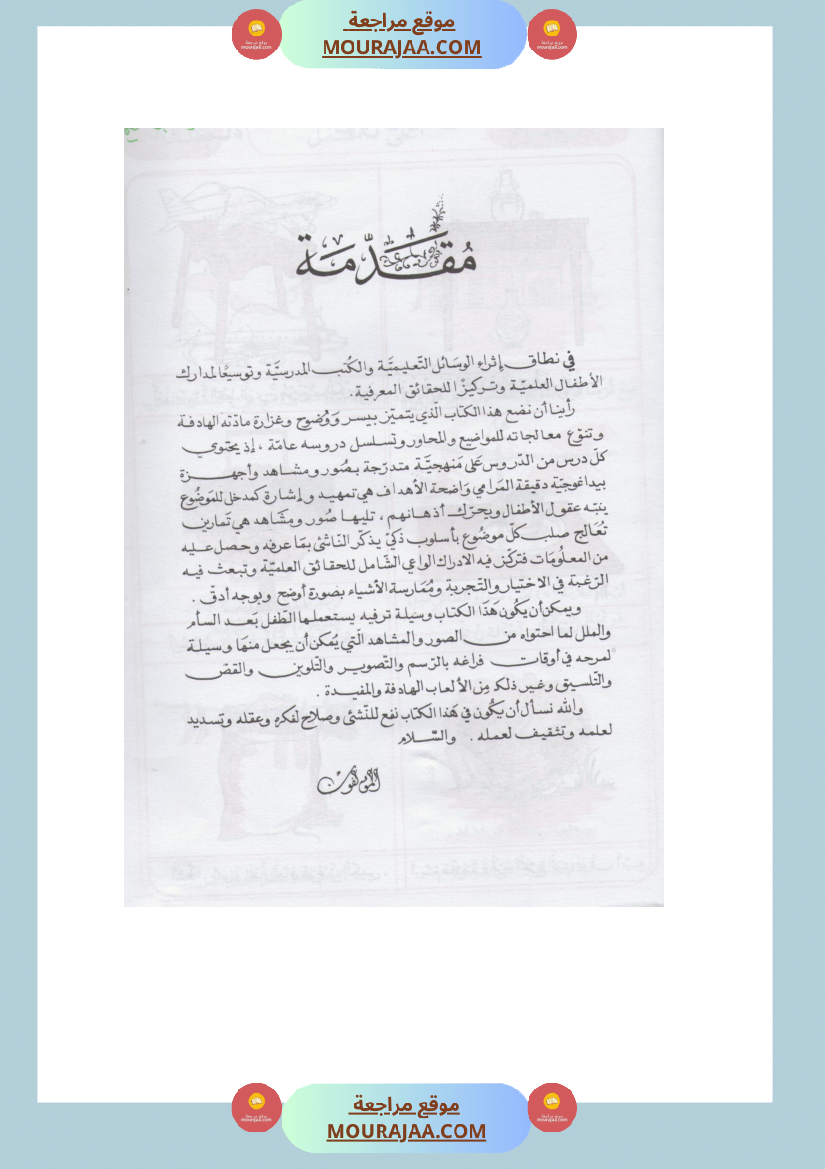 موقع مراجعة
MOURAJAA.COM
مُقَدِّمَة
في نطاق إثراء الوسَائل التّعـليميَّـة والكُتب المدرسيَّة وتوسيعًا لمدارك
الأطفـال العلميّـة وتـركيزًا للحقائق المعرفية.
رأينا أن نضع هذا الكتاب الّذي يتميّز بيسـر وَوُضوح وغزارة مادّته الهادفـة
وتنوّع معالجاته للمواضيع والمحاور وتسلسل دروسه عامّة ، إذ يحتوي
كلّ درس من الدّروس عَلى مَنهجيَّـة متدرّجة بصُور ومشـاهد وأجهـزة
بيداغوجيّة دقيقة المَرامي وَاضحة الأهداف هي تمهيد وإشارة كمدخل للمَوضُوع
ينبّه عقول الأطفال ويحرّك أذهانهم ، تليها صُور ومشَاهد هي تَمارين
تُعَالج صلب كلّ موضُوع بأسلوب ذكيّ يذكّر النّاشئ بمَا عرفه وحصل عليه
من المعلُومَات فتركّز فيه الادراك الواعي الشّامل للحقائق العلميّة وتبعث فيه
الرّغبـة في الاختيار والتّجربة ومُمَارسة الأشياء بصُورة أوضح وبوجه أدقّ .
ويمكن أن يكُون هَذا الكتاب وسيلة ترفيه يستعملها الطّفل بَعـد السأم
والملل لما احتواه من الصور والمشاهد الّتي يُمكن أن يجعل منهَا وسيلـة
لمرحه في أوقات فراغه بالرّسم والتّصويـر والتّلوين والقصّ
والتّلسيق وغيـر ذلك مِن الألعاب الهادفة والمفيـدة .
والله نسـأل أن يكُون في هَذا الكتاب نفع للنّشئ وصلاح لفكره وعقله وتسديد
لعلمه وتثقيف لعمله . والسّـلام
المؤلفون
موقع مراجعة
MOURAJAA.COM